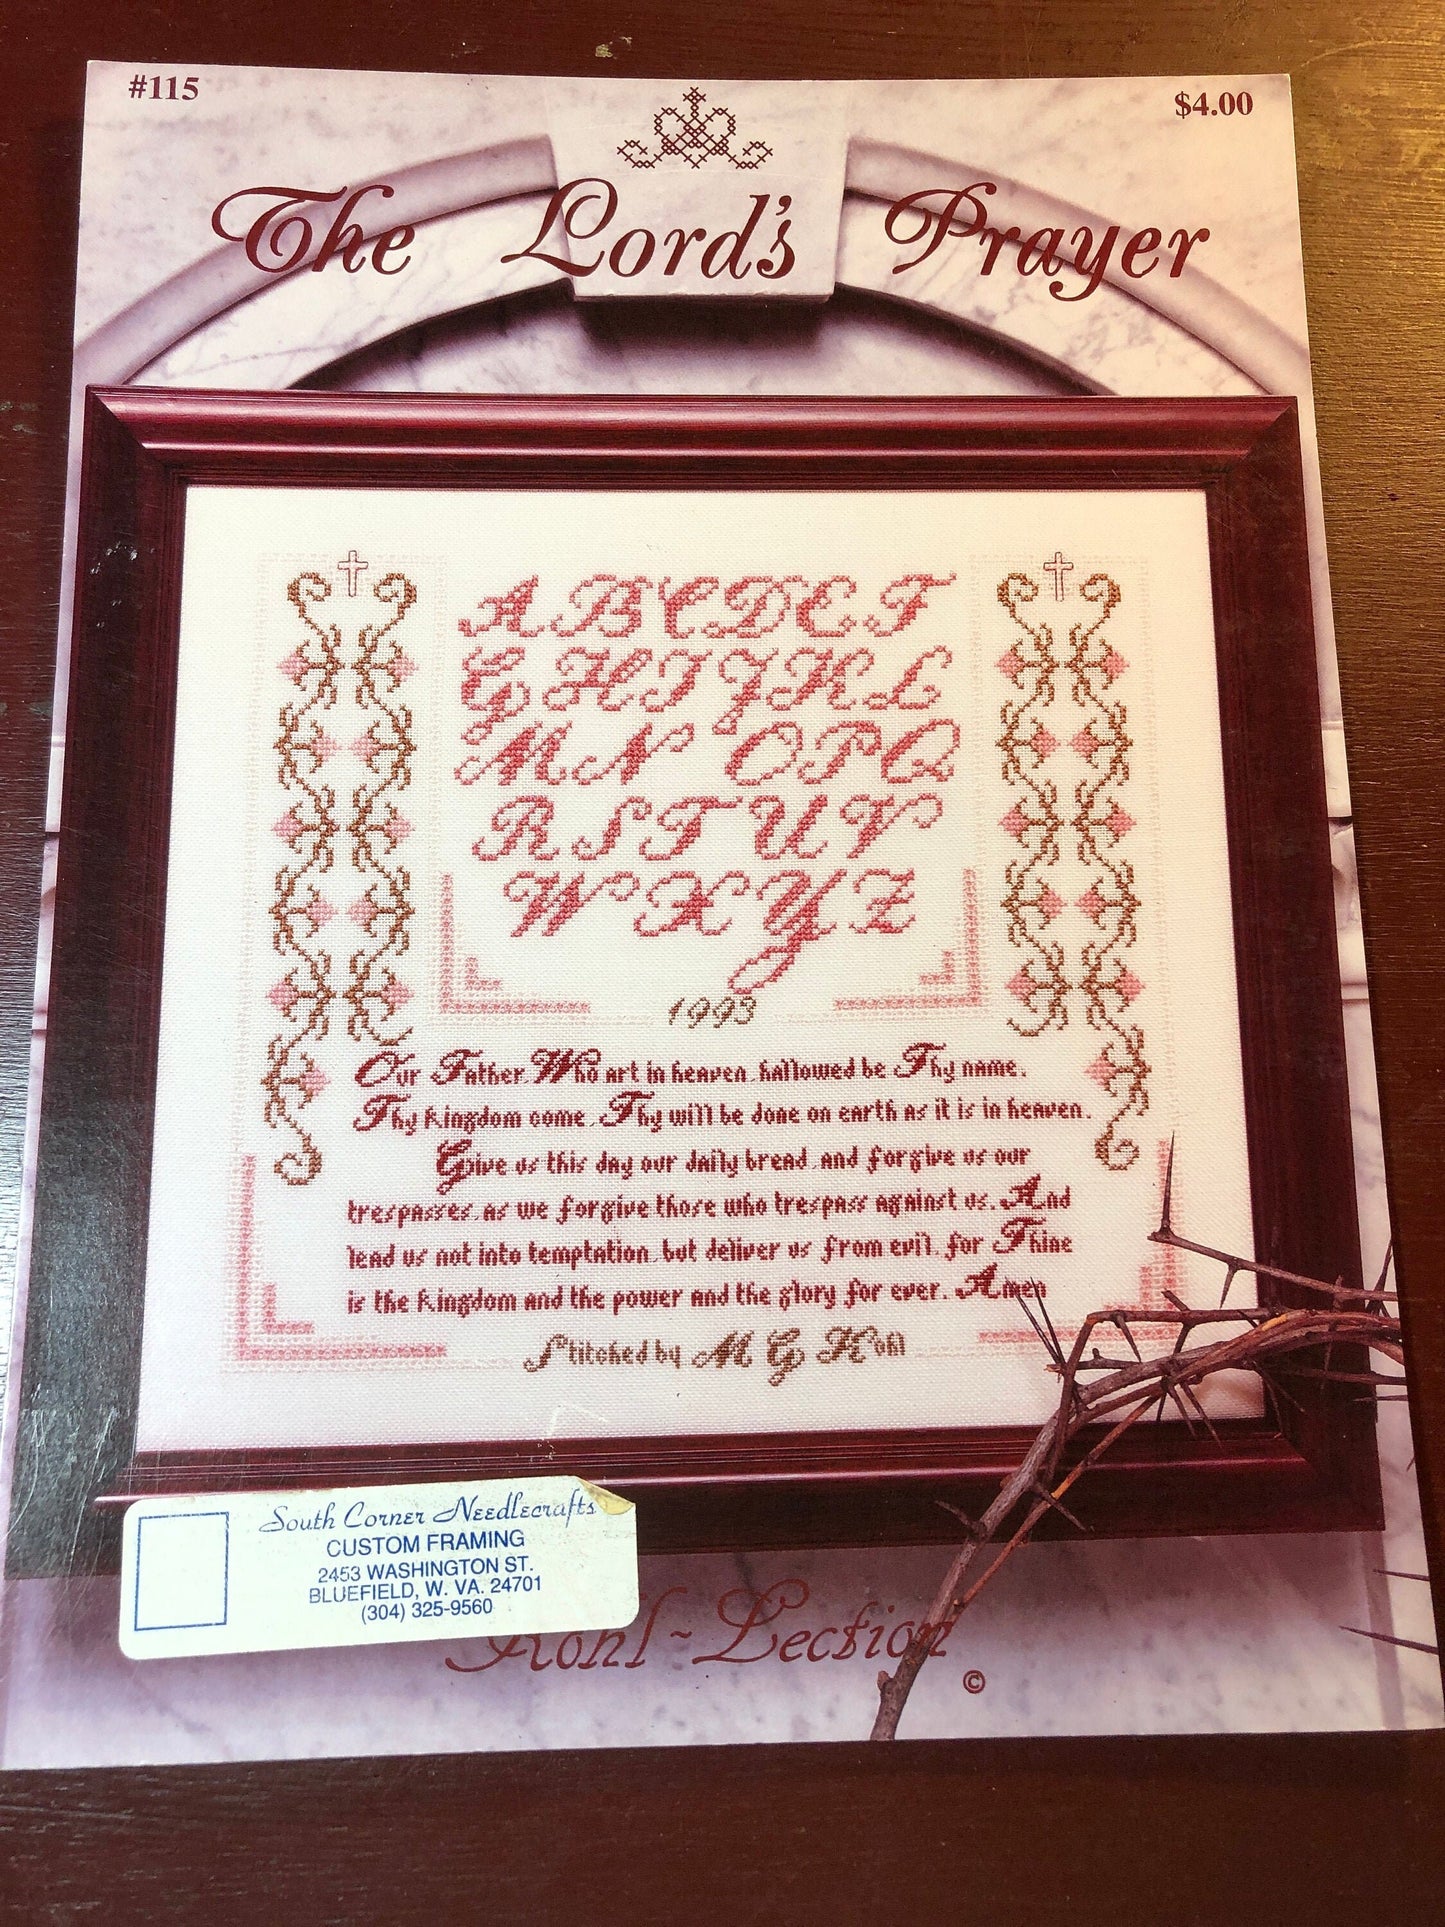 #115
$4.00
The Lord's Prayer
A B C D E F
G H I J K L
M N O P Q
R S T U V
W X Y Z
1993
Our Father, Who art in heaven, hallowed be Thy name.
Thy kingdom come, Thy will be done on earth as it is in heaven.
Give us this day our daily bread, and forgive us our
trespasses, as we forgive those who trespass against us. And
lead us not into temptation, but deliver us from evil, for Thine
is the kingdom and the power and the glory for ever. Amen
Stitched by M G Kohl
South Corner Needlecrafts
CUSTOM FRAMING
2453 WASHINGTON ST.
BLUEFIELD, W. VA. 24701
(304) 325-9560
Kohl~Lection
©